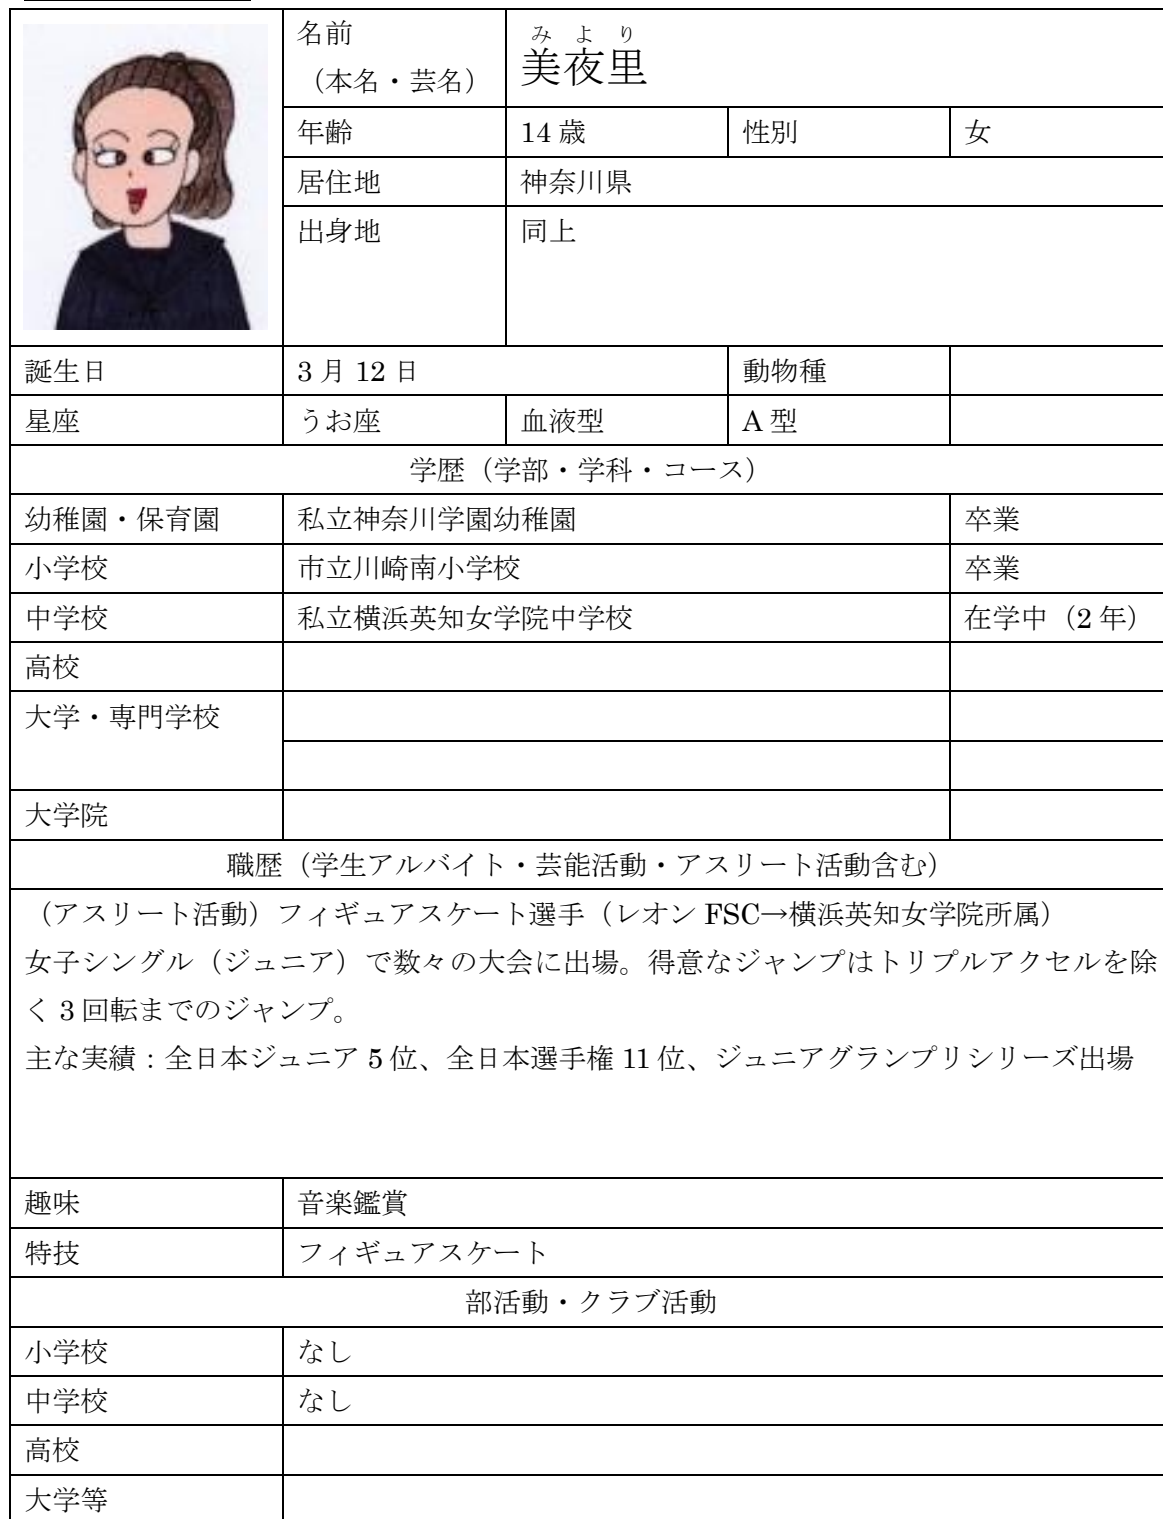 名前
(本名・芸名)
みより
美夜里
年齢 14歳 性別 女
居住地 神奈川県
出身地 同上
誕生日 3月12日 動物種
星座 うお座 血液型 A型
学歴（学部・学科・コース）
幼稚園・保育園 私立神奈川学園幼稚園 卒業
小学校 市立川崎南小学校 卒業
中学校 私立横浜英知女学院中学校 在学中（2年）
高校
大学・専門学校
大学院
職歴（学生アルバイト・芸能活動・アスリート活動含む）
（アスリート活動）フィギュアスケート選手（レオンFSC→横浜英知女学院所属）
女子シングル（ジュニア）で数々の大会に出場。得意なジャンプはトリプルアクセルを除
く3回転までのジャンプ。
主な実績：全日本ジュニア5位、全日本選手権11位、ジュニアグランプリシリーズ出場
趣味 音楽鑑賞
特技 フィギュアスケート
部活動・クラブ活動
小学校 なし
中学校 なし
高校
大学等